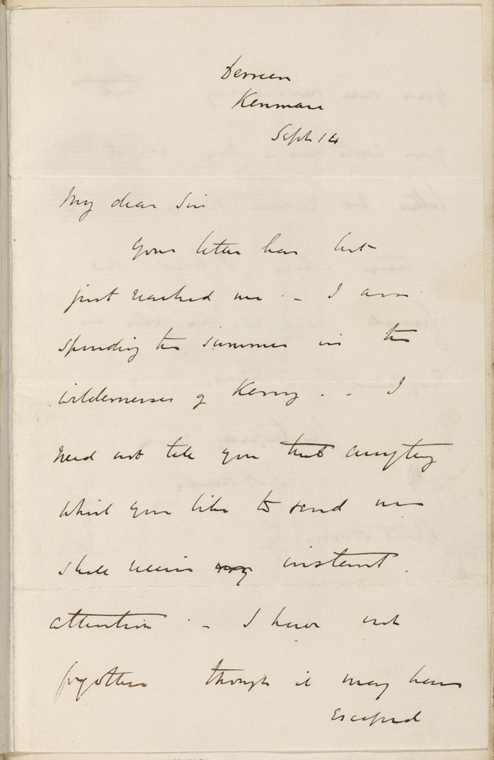 Derreen
Kenmare
Sept 14
My dear Sir
Your letter has but
just reached me. - I am
spending the summer in the
wildernesses of Kerry. - I
need not tell you that anything
which you like to send me
shall receive my instant
attention. - I have not
forgotten though it may have
escaped